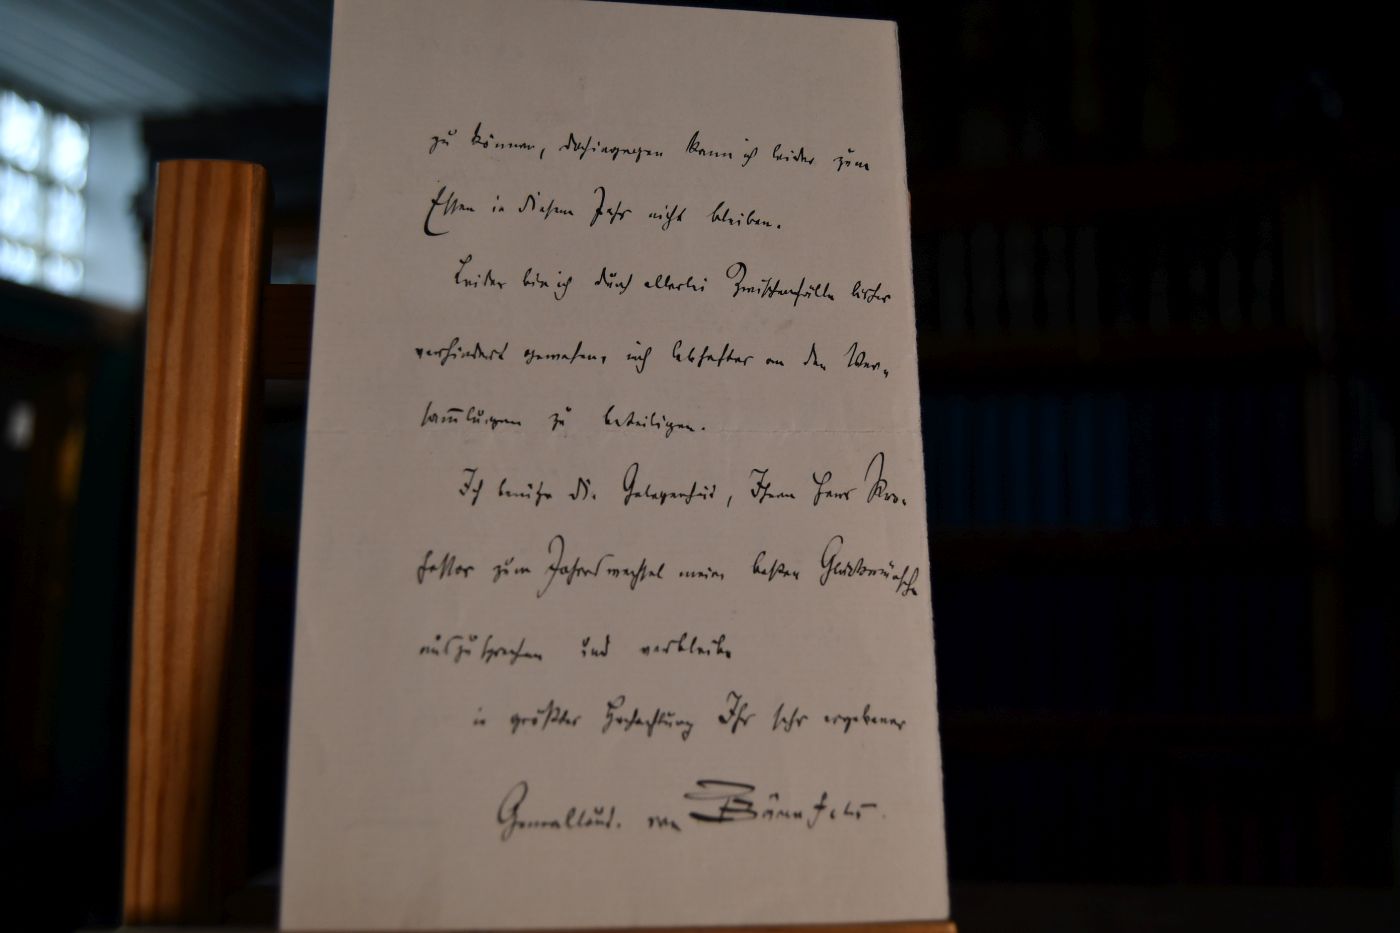 zu können, dahingegen kann ich leider zum
Essen in diesem Jahr nicht bleiben.
Leider bin ich durch allerlei Zwischenfälle bisher
verhindert gewesen, mich lebhafter an den Ver-
sam̅lungen zu beteiligen.
Ich benütze die Gelegenheit, Ihnen Herr Pro-
fessor zum Jahreswechsel meine besten Glückwünsche
auszusprechen und verbleibe
in größter Hochachtung Ihr sehr ergebener
Generalleut. von